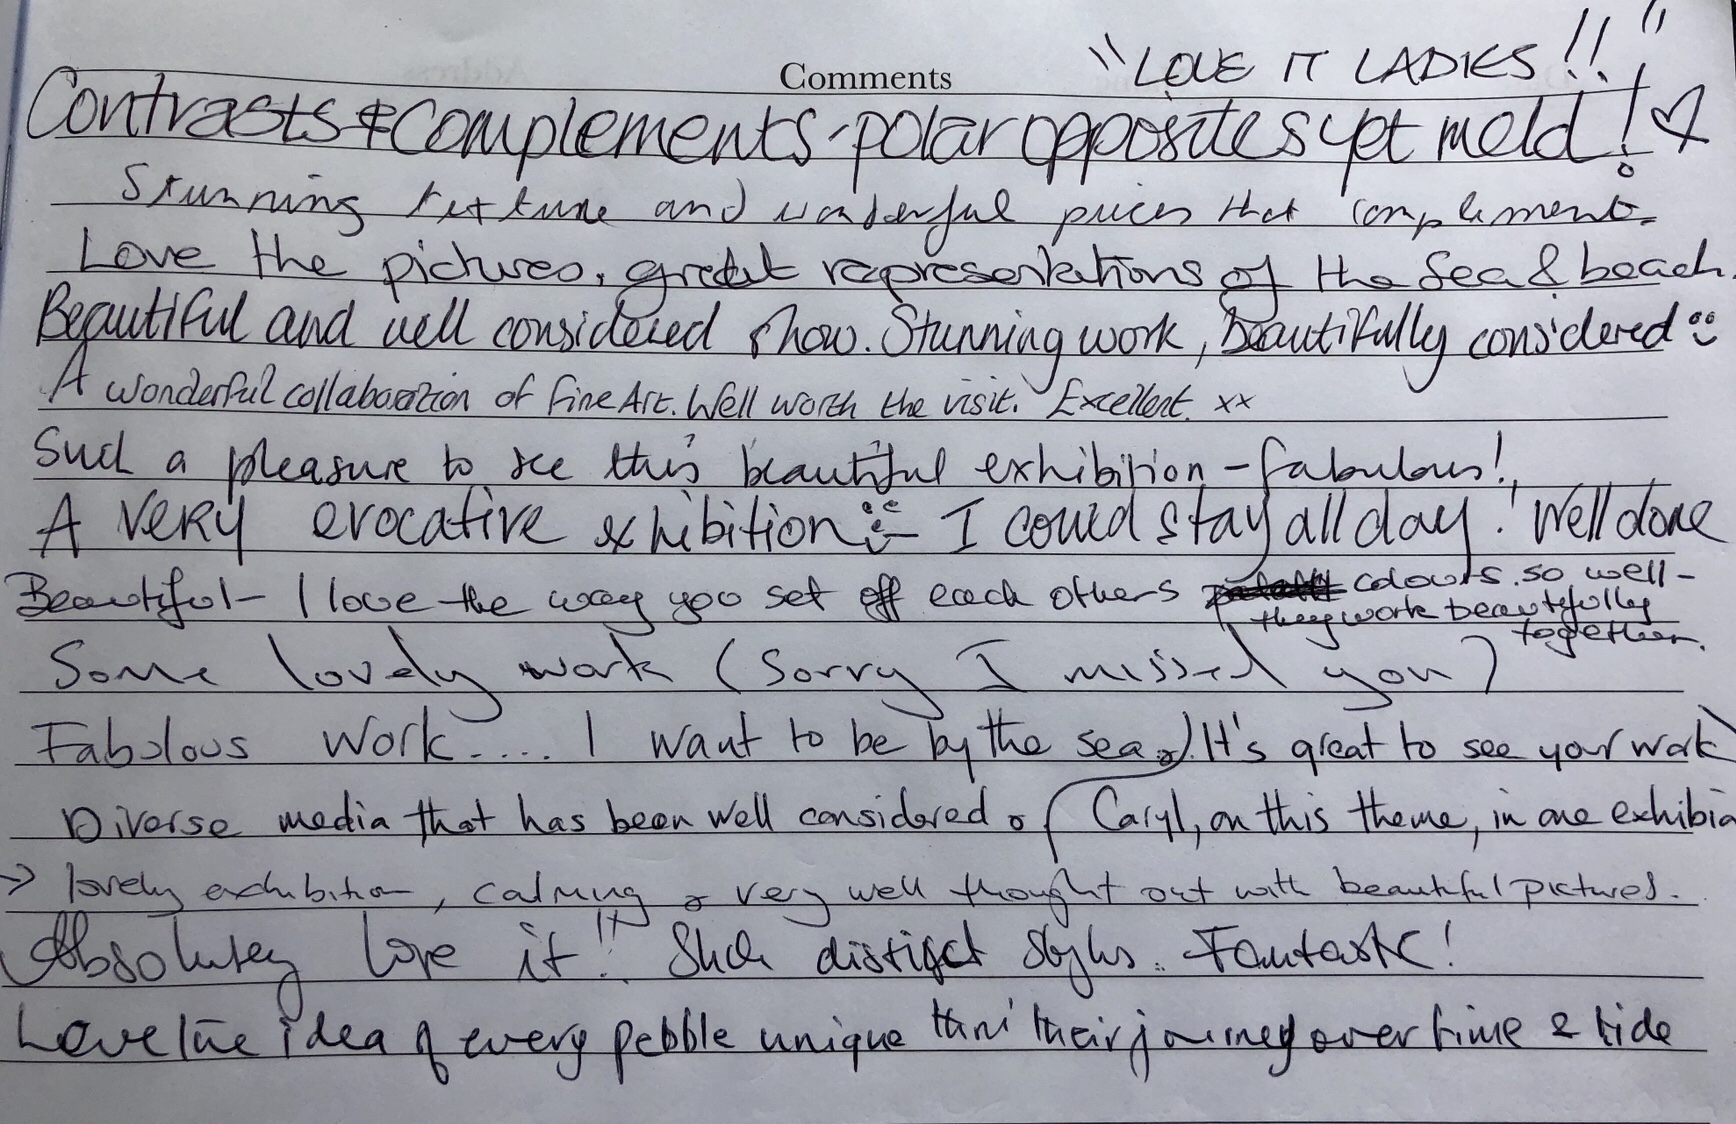 Comments
"LOVE IT LADIES!!"
Contrasts & complements - polar opposites yet meld! ♡
Stunning texture and wonderful pieces that complement.
Love the pictures, great representations of the Sea & beach.
Beautiful and well considered show. Stunning work, beautifully considered
A wonderful collaboration of Fine Art. Well worth the visit. Excellent. xx
Such a pleasure to see this beautiful exhibition - fabulous!
A very evocative exhibition - I could stay all day! Well done
Beautiful - I love the way you set off each others colours so well -
they work beautifully
together.
Some lovely work (Sorry I missed you)
Fabulous work.... I want to be by the sea. It's great to see your work
Diverse media that has been well considered. Caryl, on this theme, in one
→ lovely exhibition, calming & very well thought out with beautiful pictures.
Absolutely love it!! Such distinct styles. Fantastic!
Love the idea of every pebble unique their journey over time & tide